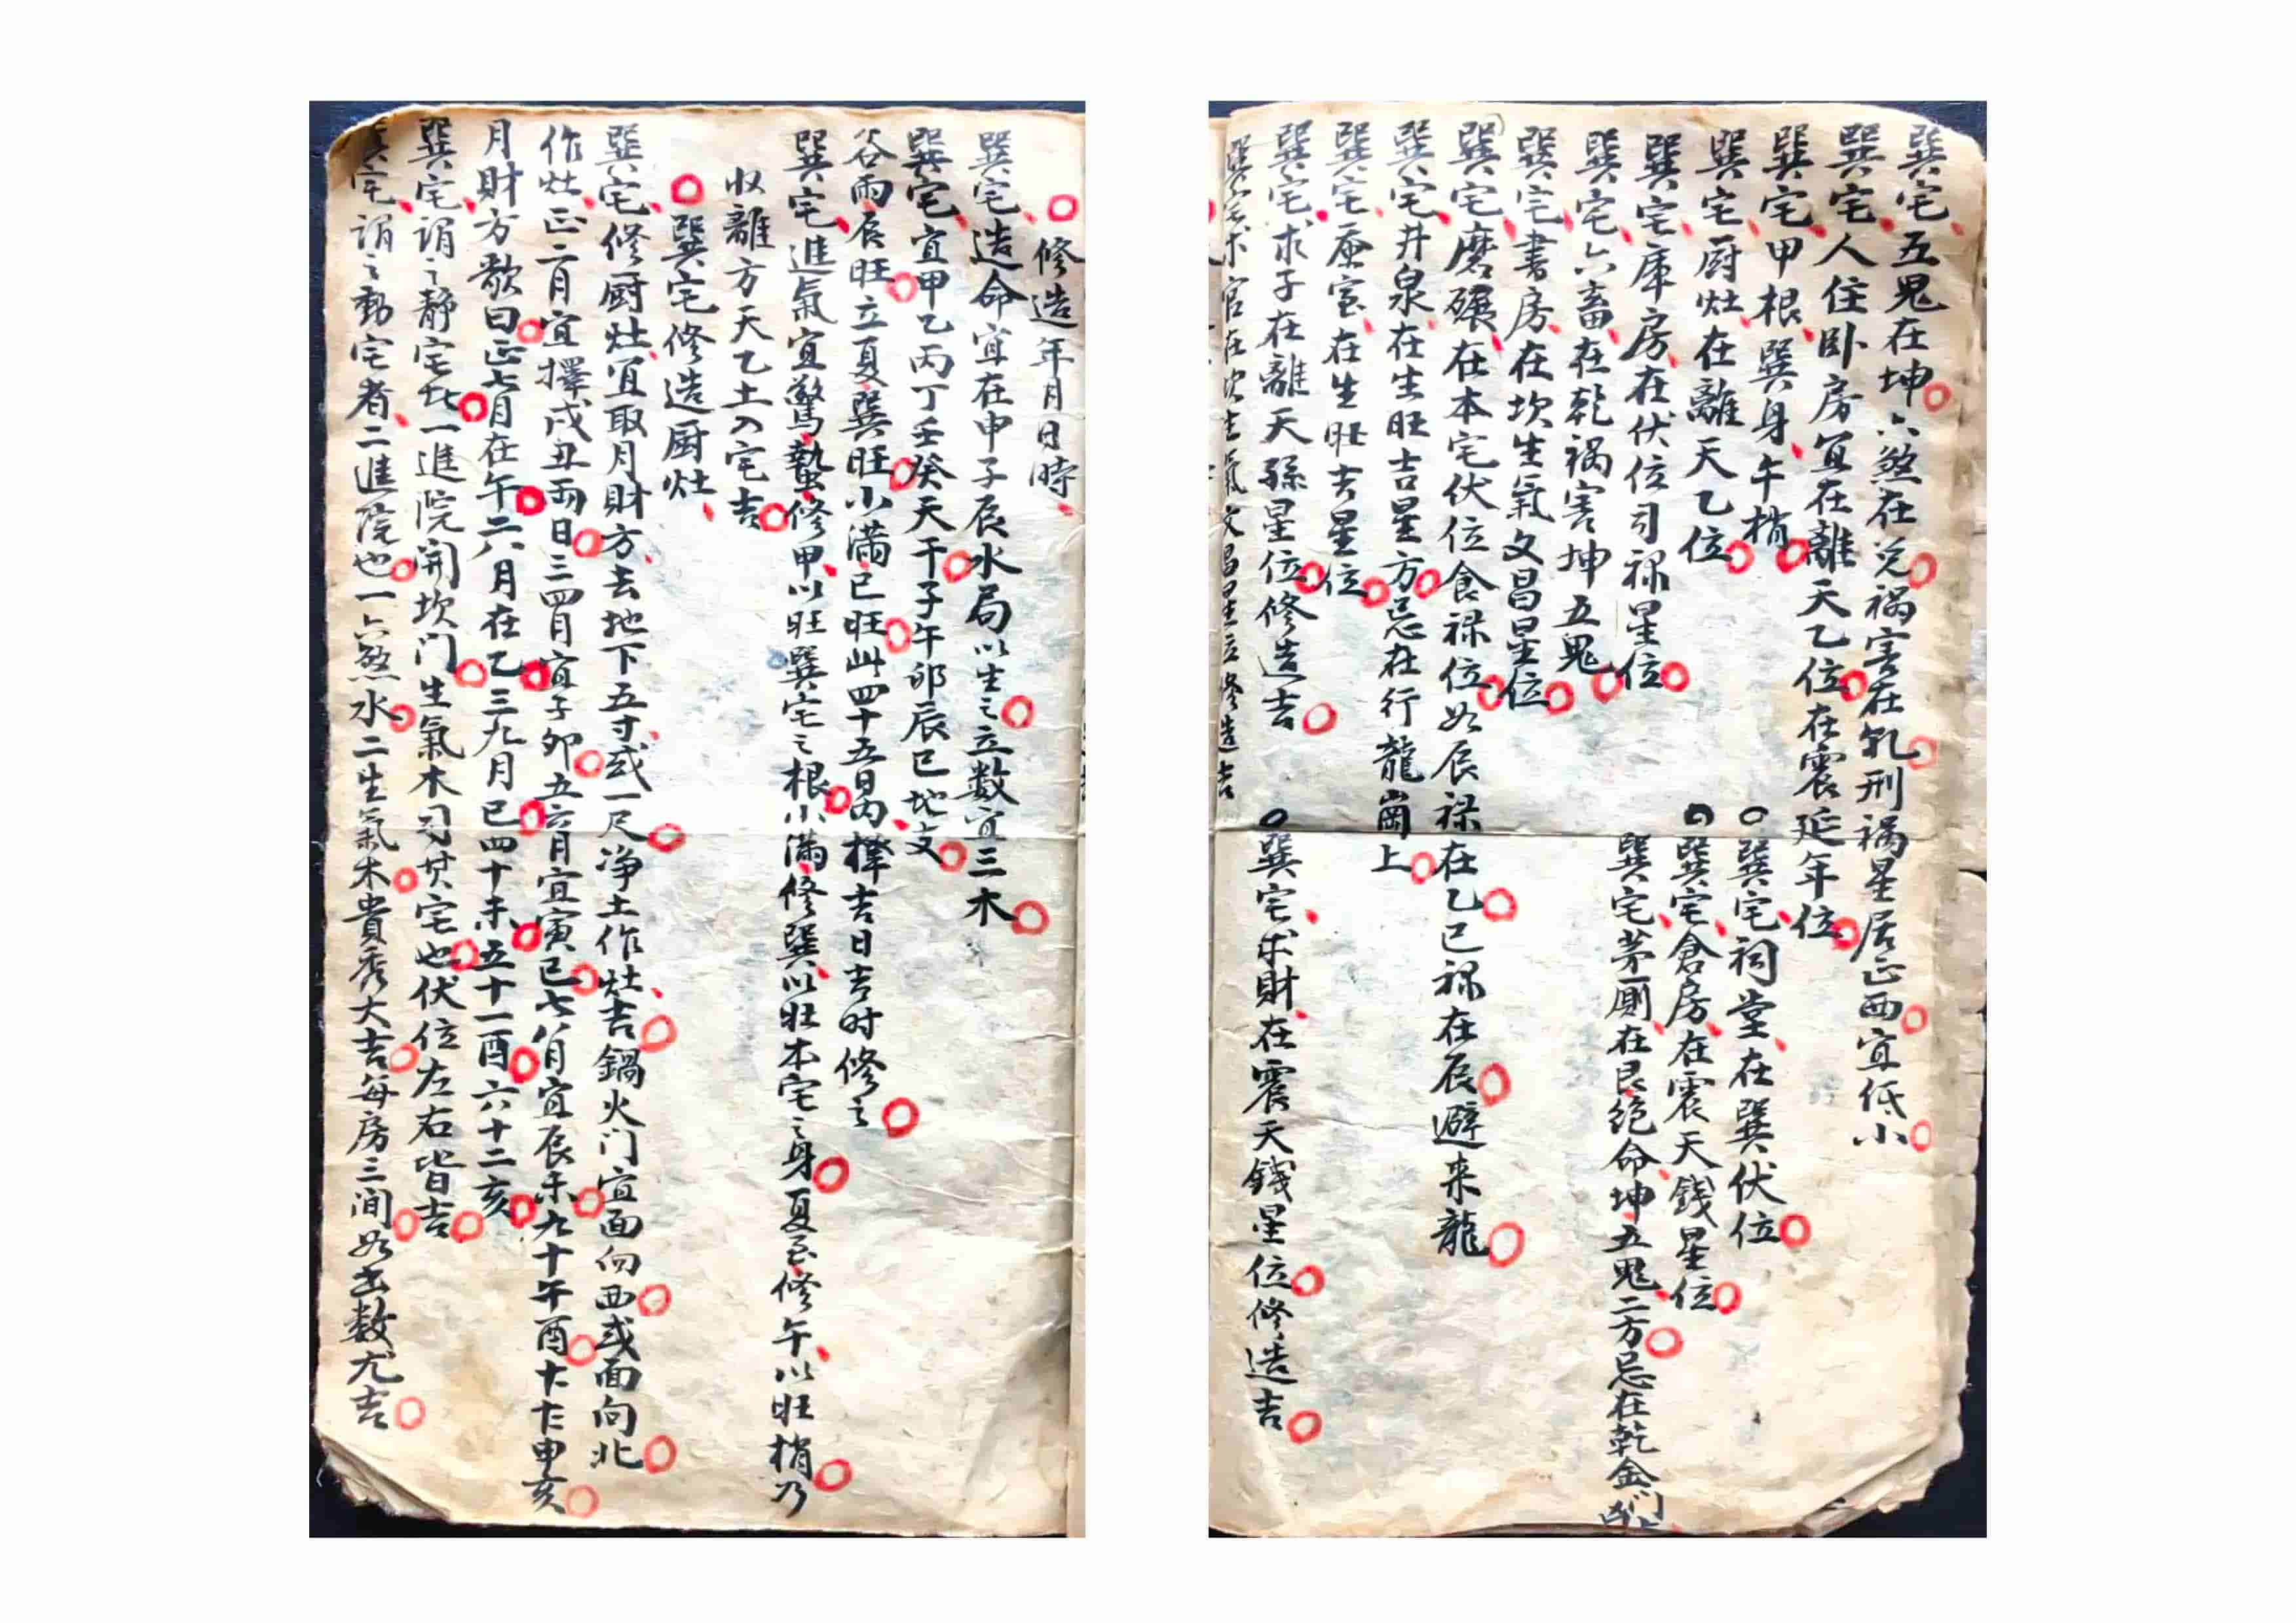 巽宅五鬼在坤六煞在兑祸害在乹刑祸星居正西宜低小
巽宅人住卧房宜在離天乙位在震延年位
巽宅甲根巽身午梢
巽宅祠堂在巽伏位
巽宅厨灶在離天乙位
巽宅倉房在震天錢星位
巽宅库房在伏位司禄星位
巽宅茅厠在艮絶命坤五鬼二方忌在乾金门
巽宅六畜在乾祸害坤五鬼
巽宅書房在坎生氣文昌星位
巽宅磨碾在本宅伏位食禄位如辰禄在乙巳禄在辰避来龍
巽宅井泉在生旺吉星方忌在行龍崗上
巽宅蚕室在生旺吉星位
巽宅求子在離天孫星位修造吉
巽宅求財在震天錢星位修造吉
巽宅求官在坎生氣文昌星位修造吉
修造年月日時
巽宅造命宜在申子辰水局以生之立数宜三木
巽宅宜甲乙丙丁壬癸天干子午卯辰巳地支
谷雨辰旺立夏巽旺小满巳旺此四十五日内擇吉日吉时修之
巽宅進氣宜驚蟄修甲以旺巽宅之根小满修巽以旺本宅之身夏至修午以旺梢乃
収離方天乙土入宅吉
巽宅修造厨灶
巽宅修厨灶宜取月财方去地下五寸或一尺净土作灶吉鍋火门宜面向西或面向北
作灶正二月宜擇戌丑两日三四月宜子卯五六月宜寅巳七八月宜辰未九十午酉十十申亥
月财方歌曰正七月在午二八月在乙三九月巳四十未五十一酉六十二亥
巽宅谓之静宅此一進院開坎门生氣木司其宅也伏位左右皆吉
巽宅谓之動宅者二進院也一六煞水二生氣木貴秀大吉每房三间如出数尤吉